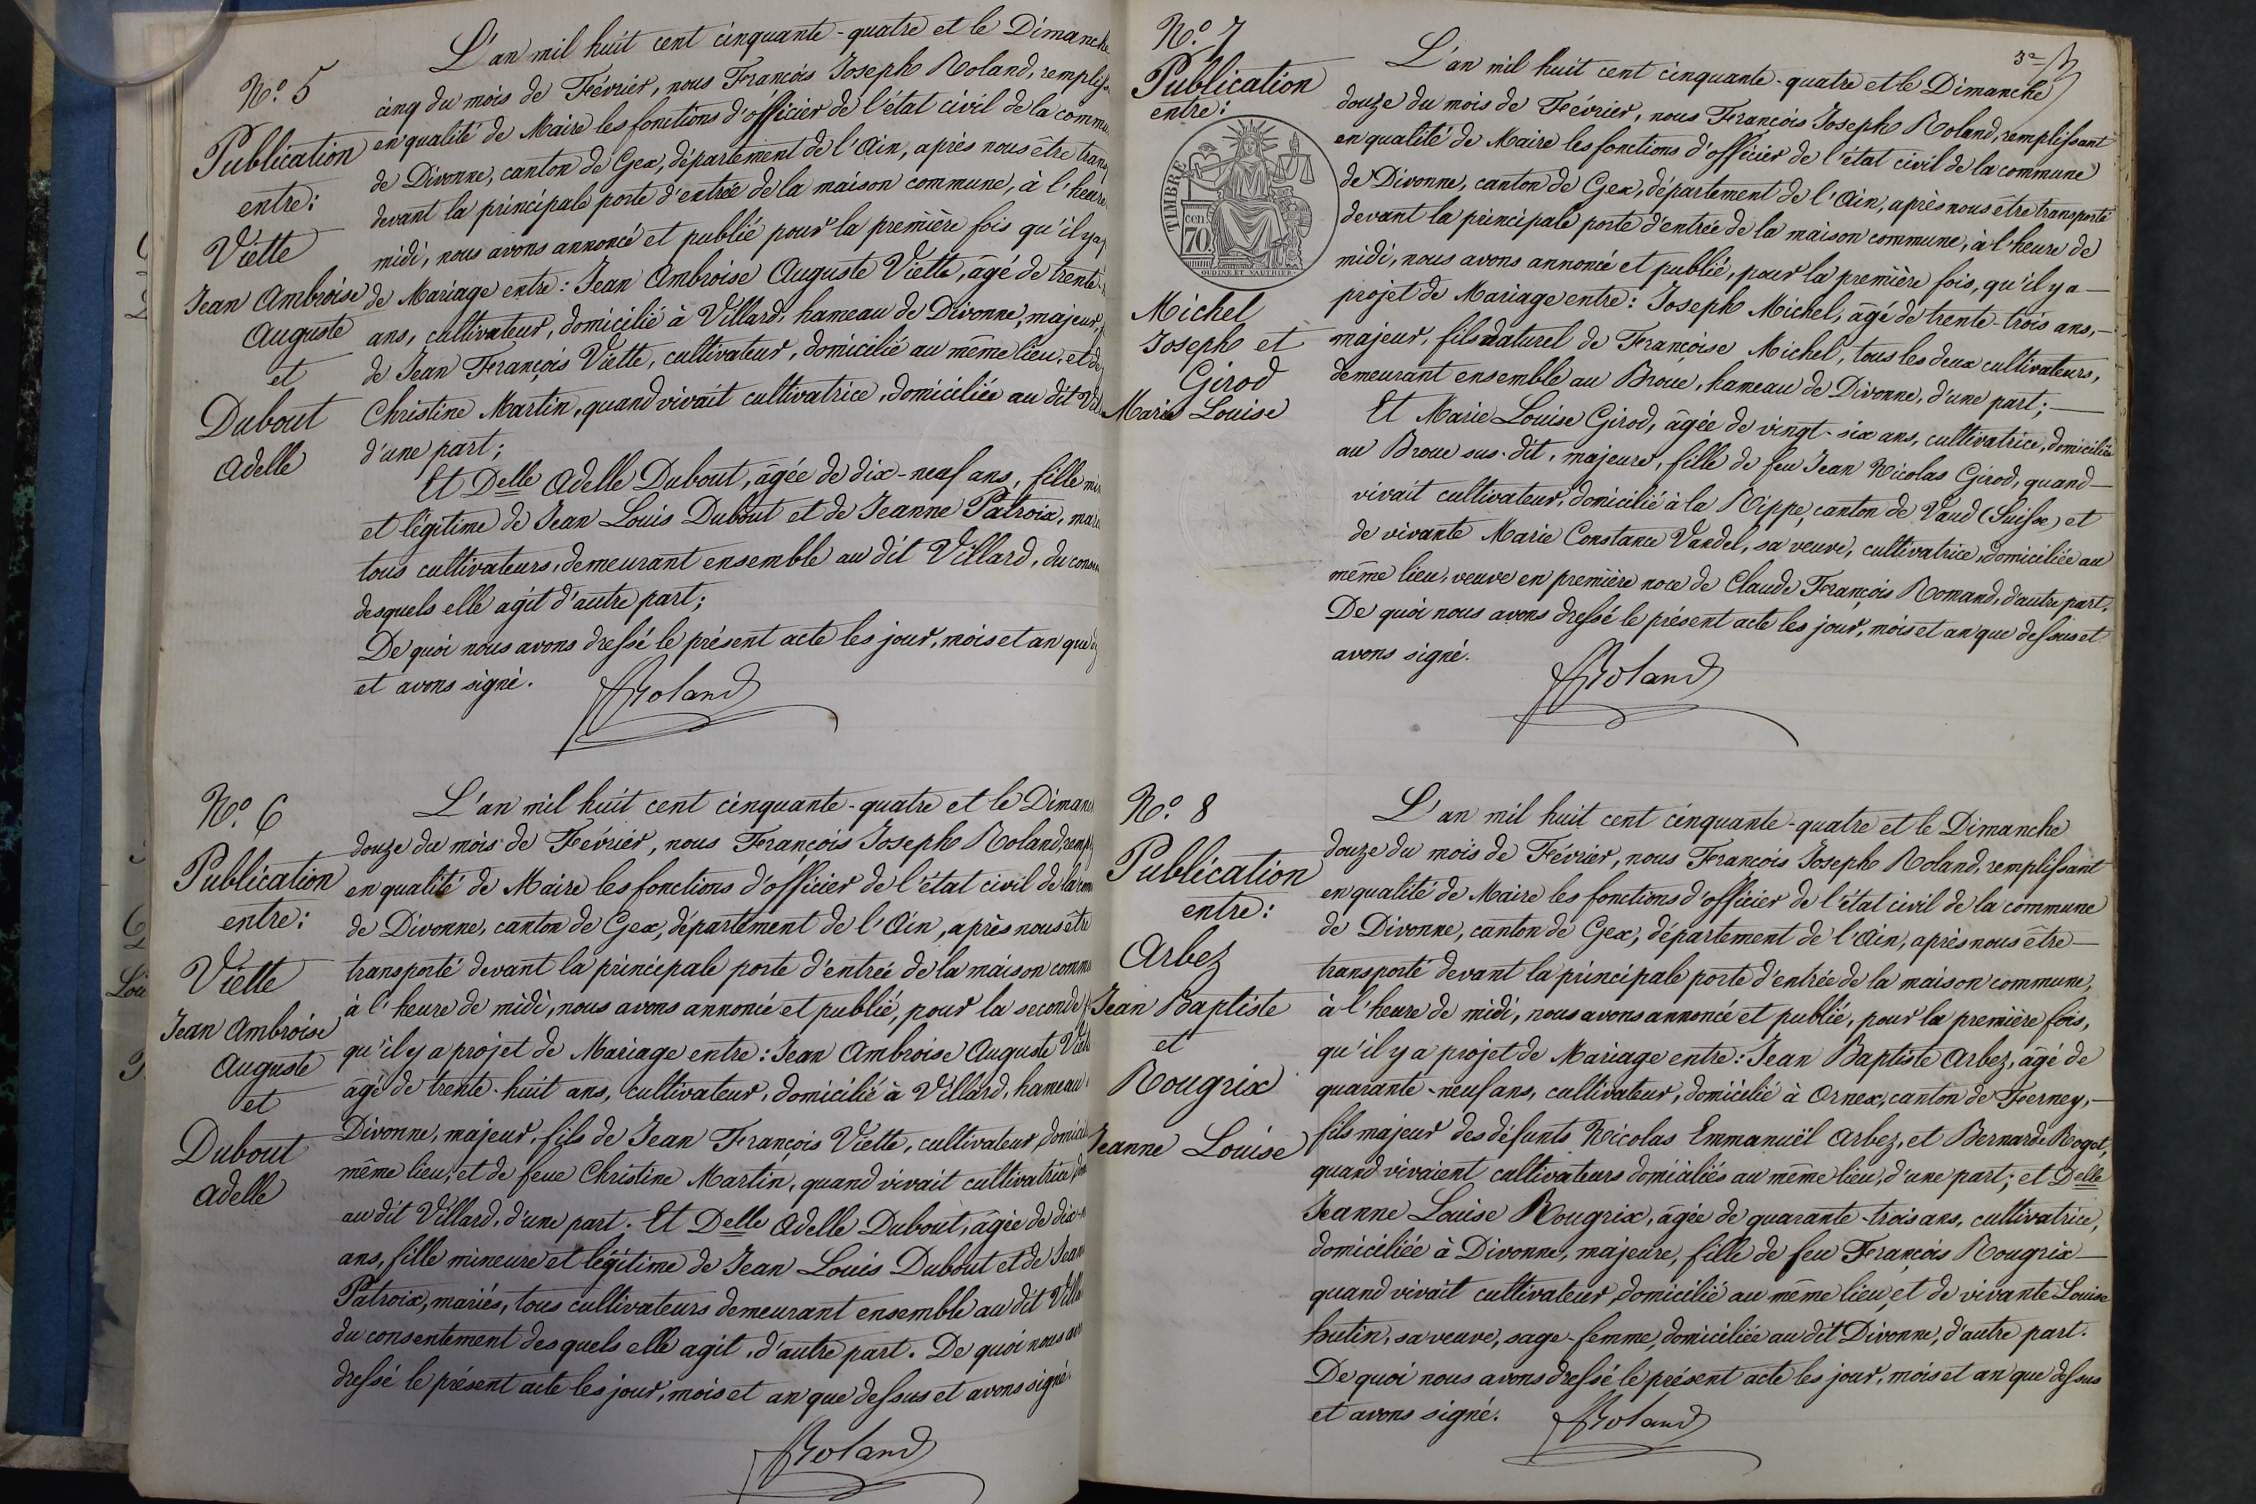 N.º 5
Publication
entre:
Viette
Jean Ambroise
Auguste
et
Dubout
Adelle
L'an mil huit cent cinquante-quatre et le Dimanche
cinq du mois de Février, nous François Joseph Roland, remplis
en qualité de Maire les fonctions d'officier de l'état civil de la commu
de Divonne, canton de Gex, département de l'Ain, après nous être trans
devant la principale porte d'entrée de la maison commune, à l'heure
midi, nous avons annoncé et publié pour la première fois qu'il y a
de Mariage entre: Jean Ambroise Auguste Viette, âgé de trente-
ans, cultivateur, domicilié à Villard, hameau de Divonne, majeur,
de Jean François Viette, cultivateur, domicilié au même lieu, et de
Christine Martin, quand vivait cultivatrice, domiciliée au dit Vil
d'une part;
Et Delle Adelle Dubout, âgée de dix-neuf ans, fille mi
et légitime de Jean Louis Dubout et de Jeanne Patroix, mar
tous cultivateurs, demeurant ensemble au dit Villard, du conse
desquels elle agit d'autre part;
De quoi nous avons dressé le présent acte les jour, mois et an que
et avons signé.
Roland
N.º 6
Publication
entre:
Viette
Jean Ambroise
Auguste
et
Dubout
Adelle
L'an mil huit cent cinquante-quatre et le Diman
douze du mois de Février, nous François Joseph Roland, remp
en qualité de Maire les fonctions d'officier de l'état civil de la com
de Divonne, canton de Gex, département de l'Ain, après nous être
transporté devant la principale porte d'entrée de la maison comm
à l'heure de midi, nous avons annoncé et publié, pour la seconde
qu'il y a projet de Mariage entre: Jean Ambroise Auguste Viett
âgé de trente-huit ans, cultivateur, domicilié à Villard, hameau
Divonne, majeur, fils de Jean François Viette, cultivateur, domicil
même lieu, et de feue Christine Martin, quand vivait cultivatrice, do
au dit Villard, d'une part. Et Delle Adelle Dubout, âgée de dix-n
ans, fille mineure et légitime de Jean Louis Dubout et de Jean
Patroix, mariés, tous cultivateurs demeurant ensemble au dit Villa
du consentement desquels elle agit, d'autre part. De quoi nous av
dressé le présent acte les jour, mois et an que dessus et avons signé.
Roland
N.º 7
Publication
entre:
TIMBRE
70
Michel
Joseph et
Girod
Marie Louise
L'an mil huit cent cinquante-quatre et le Dimanche
douze du mois de Février, nous François Joseph Roland, remplissant
en qualité de Maire les fonctions d'officier de l'état civil de la commune
de Divonne, canton de Gex, département de l'Ain, après nous être transporté
devant la principale porte d'entrée de la maison commune, à l'heure de
midi, nous avons annoncé et publié, pour la première fois, qu'il y a
projet de Mariage entre: Joseph Michel, âgé de trente-trois ans,
majeur, fils naturel de Françoise Michel, tous les deux cultivateurs,
demeurant ensemble au Broue, hameau de Divonne, d'une part;
Et Marie Louise Girod, âgée de vingt-six ans, cultivatrice, domiciliée
au Broue sus-dit, majeure, fille de feu Jean Nicolas Girod, quand
vivait cultivateur, domicilié à la Rippe, canton de Vaud (Suisse) et
de vivante Marie Constance Vandel, sa veuve, cultivatrice, domiciliée au
même lieu, veuve en première noce de Claude François Romand, d'autre part.
De quoi nous avons dressé le présent acte les jour, mois et an que dessus et
avons signé.
Roland
N.º 8
Publication
entre:
Arbez
Jean Baptiste
et
Rougrix
Jeanne Louise
L'an mil huit cent cinquante-quatre et le Dimanche
douze du mois de Février, nous François Joseph Roland, remplissant
en qualité de Maire les fonctions d'officier de l'état civil de la commune
de Divonne, canton de Gex, département de l'Ain, après nous être
transporté devant la principale porte d'entrée de la maison commune,
à l'heure de midi, nous avons annoncé et publié, pour la première fois,
qu'il y a projet de Mariage entre: Jean Baptiste Arbez, âgé de
quarante-neuf ans, cultivateur, domicilié à Ornex, canton de Ferney,
fils majeur des défunts Nicolas Emmanuël Arbez, et Bernarde Rogot,
quand vivaient cultivateurs domiciliés au même lieu, d'une part; et Delle
Jeanne Louise Rougrix, âgée de quarante-trois ans, cultivatrice,
domiciliée à Divonne, majeure, fille de feu François Rougrix
quand vivait cultivateur, domicilié au même lieu, et de vivante Louise
hutin, sa veuve, sage-femme, domiciliée au dit Divonne, d'autre part.
De quoi nous avons dressé le présent acte les jour, mois et an que dessus
et avons signé.
Roland